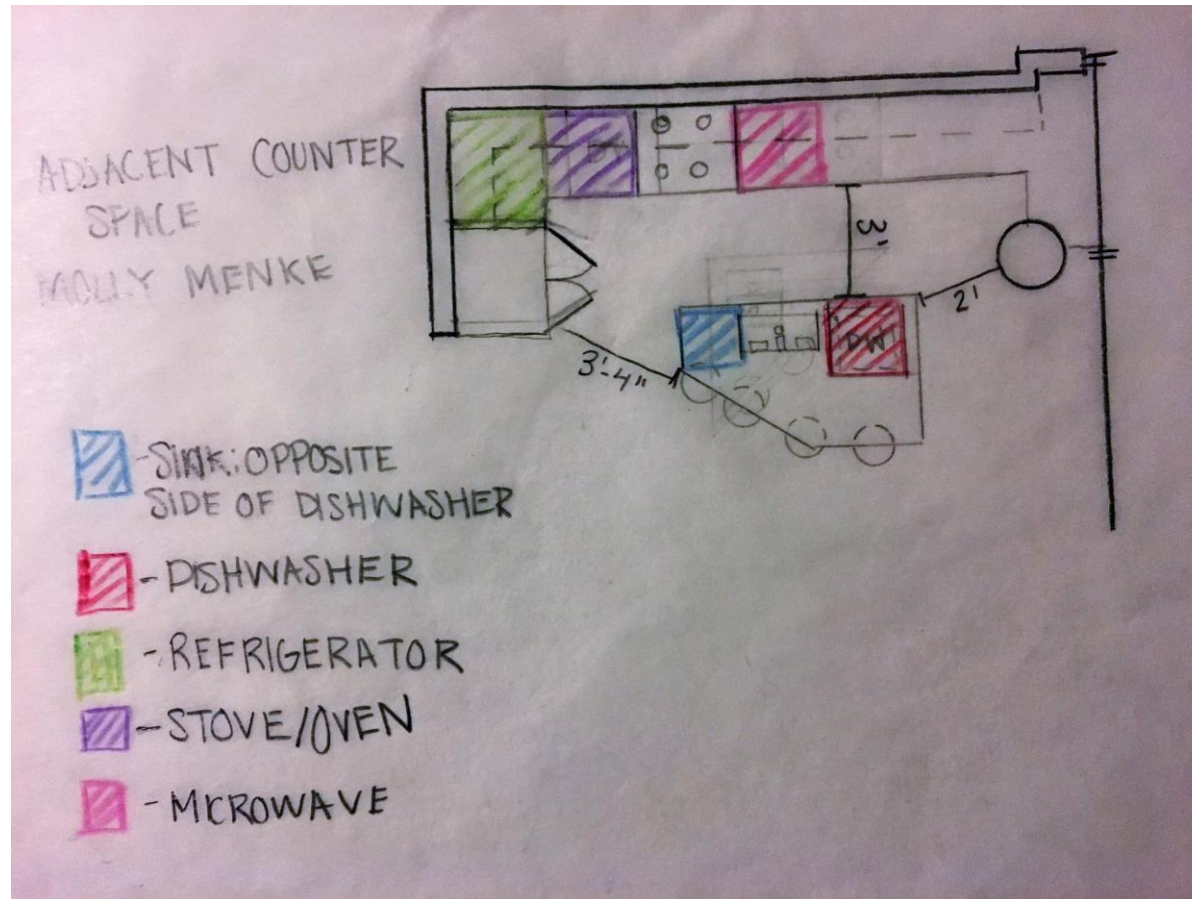 ADJACENT COUNTER
SPACE
MOLLY MENKE
3'
2'
DW
3'-4"
-SINK: OPPOSITE
SIDE OF DISHWASHER
-DISHWASHER
-REFRIGERATOR
-STOVE/OVEN
-MICROWAVE